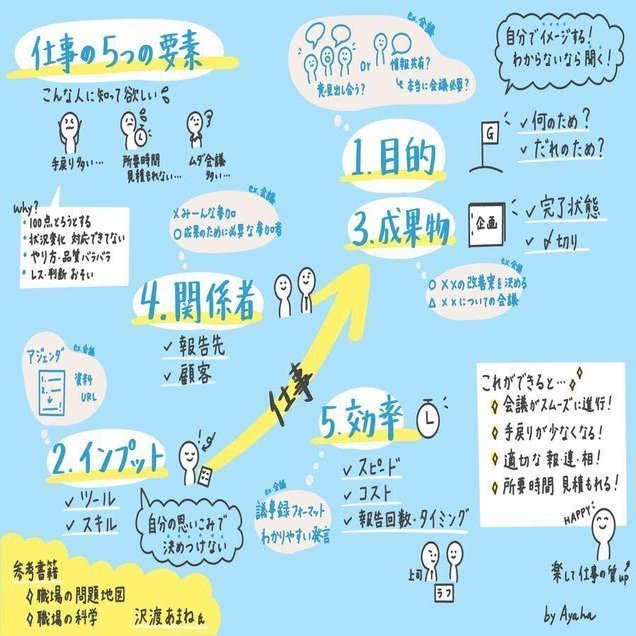 仕事の5つの要素
こんな人に知って欲しい
手戻り多い…
所要時間
見積もれない…
ムダ会議
多い…
Why?
・100点とろうとする
・状況変化 対応できてない
・やり方・品質バラバラ
・レス・判断 おそい
ex.会議
意見出し合う?
or
情報共有?
↳本当に会議必要?
自分でイメージする!
わからないなら聞く!
1.目的
G
✓何のため?
✓だれのため?
3.成果物
企画
✓完了状態
✓〆切り
ex.会議
○ ××の改善案を決める
△ ××についての会議
ex.会議
×みーんな参加
○成果のために必要な参加者
4.関係者
✓報告先
✓顧客
仕事
ex.会議
アジェンダ
1.
2.
資料
URL
2.インプット
✓ツール
✓スキル
自分の思いこみで
決めつけない
5.効率
✓スピード
✓コスト
✓報告回数・タイミング
ex.会議
議事録フォーマット
わかりやすい発言
上司
ラフ
これができると…
会議がスムーズに進行!
手戻りが少なくなる!
適切な報・連・相!
所要時間 見積もれる!
HAPPY
楽して仕事の質up
参考書籍
◇職場の問題地図
◇職場の科学 沢渡あまねさん
by Ayaha